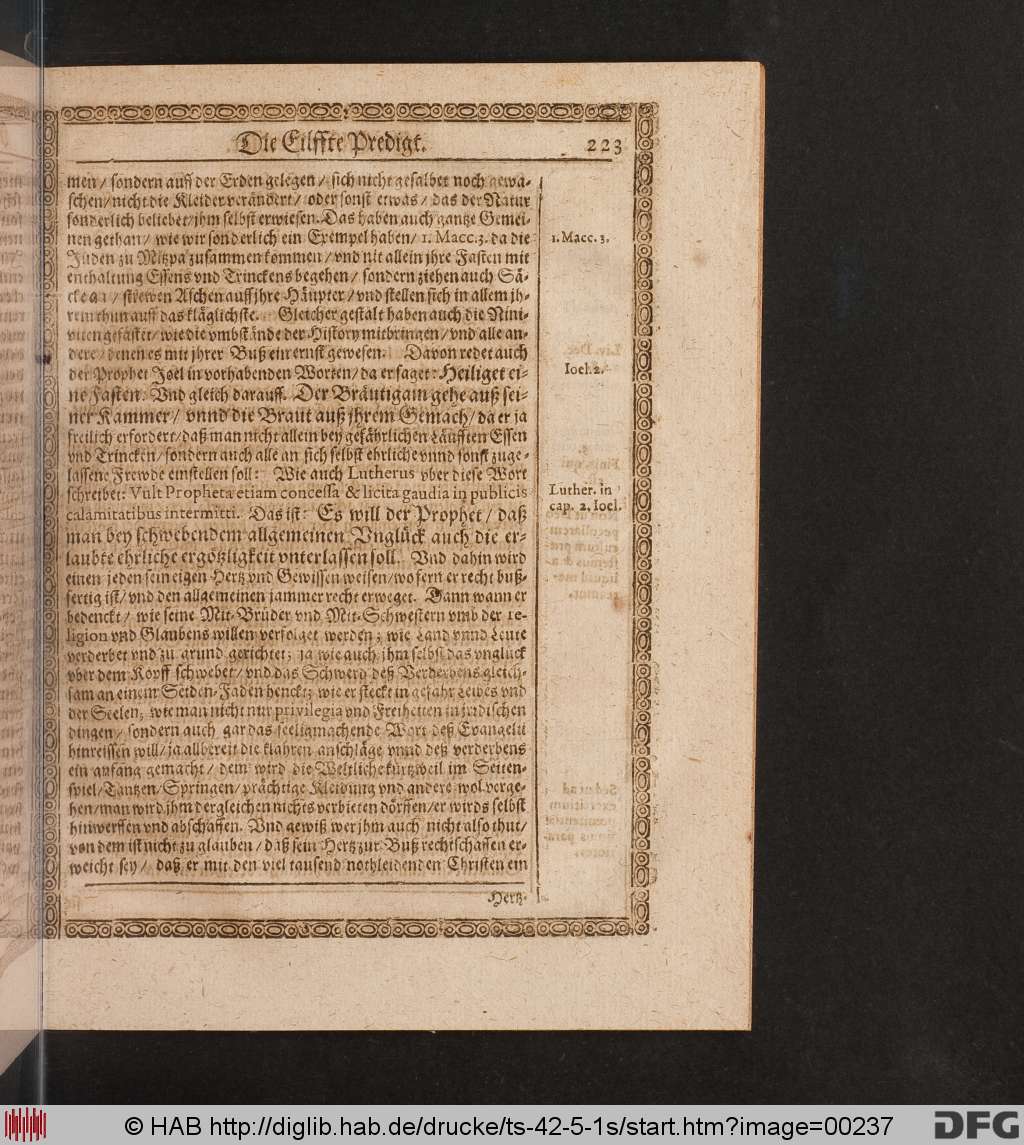 Die Eilffte Predigt. 223
men / sondern auff der Erden gelegen / sich nicht gesalbet noch gewa-
schen / nicht die Kleider verändert / oder sonst etwas / das der Natur
sonderlich beliebet / jhm selbst erwiesen. Das haben auch gantze Gemei-
nen gethan / wie wir sonderlich ein Exempel haben / 1. Macc. 3. da die
1. Macc. 3.
Jüden zu Mitzpa zusammen kommen / vnd nit allein jhre Fasten mit
enthaltung Essens vnd Trinckens begehen / sondern ziehen auch Sä-
cke an / strewen Aschen auff jhre Häupter / vnd stellen sich in allem jh-
rem thun auff das kläglichste. Gleicher gestalt haben auch die Nini-
viten gefastet / wie die vmbstände der History mitbringen / vnd alle an-
dere / denen es mit jhrer Buß ein ernst gewesen. Davon redet auch
der Prophet Joel in vorhabenden Worten / da er saget: Heiliget ei-
Ioel. 2.
ne Fasten. Vnd gleich darauff. Der Bräutigam gehe auß sei-
ner Kammer / vnnd die Braut auß jhrem Gemach / da er ja
freilich erfordert / daß man nicht allein bey gefährlichen Läufften Essen
vnd Trincken / sondern auch alle an sich selbst ehrliche vnnd sonst zuge-
lassene Frewde einstellen soll: Wie auch Lutherus vber diese Wort
schreibet: Vult Propheta etiam concessa & licita gaudia in publicis
Luther. in
cap. 2. Ioel.
calamitatibus intermitti. Das ist: Es will der Prophet / daß
man bey schwebendem allgemeinen Vnglück auch die er-
laubte ehrliche ergötzligkeit vnterlassen soll. Vnd dahin wird
einen jeden sein eigen Hertz vnd Gewissen weisen / wofern er recht buß-
fertig ist / vnd den allgemeinen jammer recht erweget. Dann wann er
bedenckt / wie seine Mit-Brüder vnd Mit-Schwestern vmb der re-
ligion vnd Glaubens willen verfolget werden; wie Land vnnd Leute
verderbet vnd zu grund gerichtet; ja wie auch jhm selbst das vnglück
vber dem Kopff schwebet / vnd das Schwerd deß Verderbens gleich-
sam an einem Seiden-Faden henckt; wie er steckt in gefahr Leibes vnd
der Seelen; wie man nicht nur privilegia vnd Freiheiten in jrdischen
dingen / sondern auch gar das seeligmachende Wort deß Evangelii
hinreissen will / ja allbereit die klahren anschläge vnnd deß verderbens
ein anfang gemacht / dem wird die Weltliche kurtzweil im Seiten-
spiel / Tantzen / Springen / prächtige Kleidung vnd andere wol verge-
hen / man wird jhm dergleichen nichts verbieten dörffen / er wirds selbst
hinwerffen vnd abschaffen. Vnd gewiß wer jhm auch nicht also thut /
von dem ist nicht zu glauben / daß sein Hertz zur Buß rechtschaffen er-
weicht sey / daß er mit den viel tausend nothleidenden Christen ein
Hertz-
© HAB http://diglib.hab.de/drucke/ts-42-5-1s/start.htm?image=00237
DFG